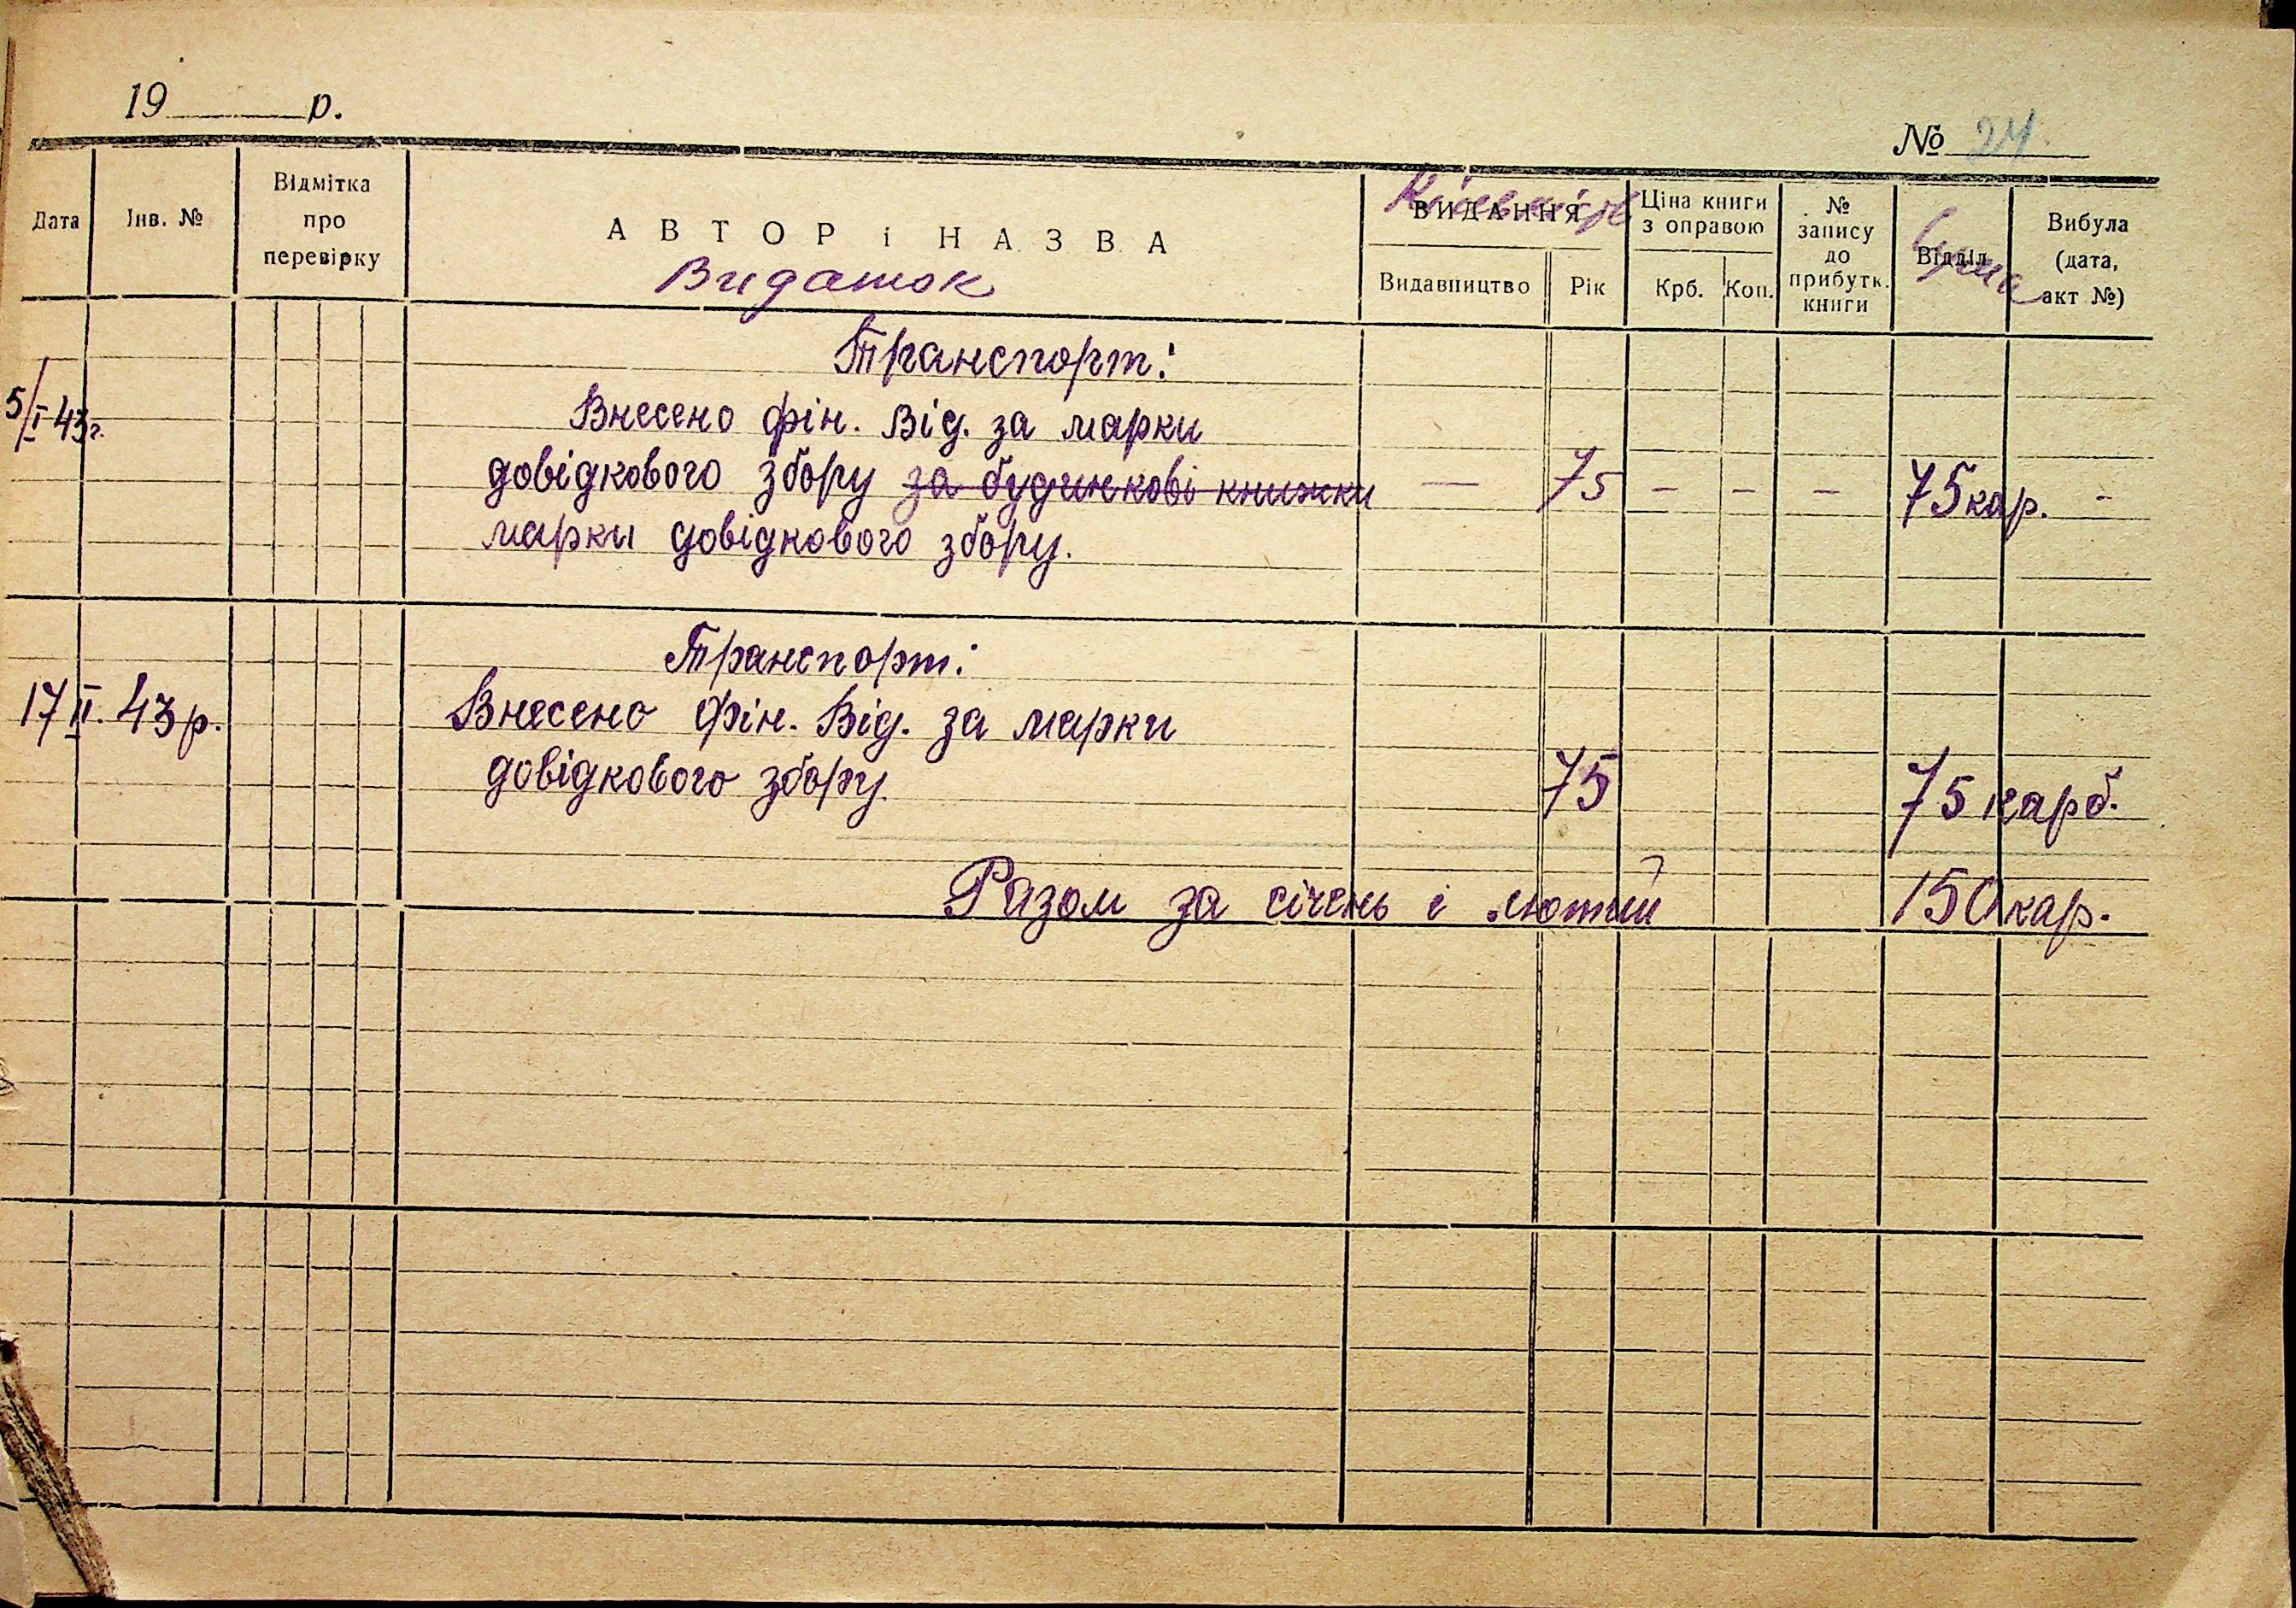 19 р.
№ 24.
Дата
Інв. №
Відмітка
про
перевірку
АВТОР і НАЗВА
Видаток
ВИДАННЯ
Видавництво
Рік
Ціна книги
з оправою
Крб.
Коп.
№
запису
до
прибутк.
книги
Відділ
Сума
Вибула
(дата,
акт №)
Транспорт:
5/I 43г.
Внесено фін. Від. за марки
довідкового збору за будинкові книжки — 75 - - - 75 кар. -
марки довідкового збору.
Транспорт:
17 II. 43 р. Внесено фін. Від. за марки
довідкового збору 75 75 карб.
Разом за січень і лютий 150 кар.